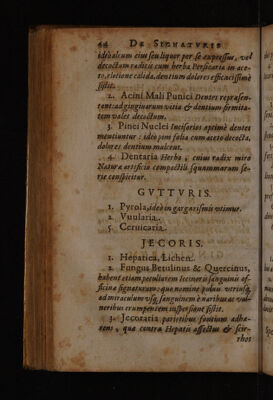 44 DE SIGNATVRIS
ideò alcum eius seu liquor per se expressus, vel
decoctum radicis cum herba Persicaria in ace-
to, elotione calida, dentium dolores efficacissimè
sistit.
2. Acini Mali Punici Dentes repræsen-
tent: ad gingiuarum vitia & dentium firmita-
tem vales decoctum.
3. Pinei Nuclei Incisorios aptimè dentes
mentiuntur: ideo pini folia cum aceto decocta,
dolores dentium mulcent.
4. Dentaria Herba, cuius radix miro
Naturæ artificio compactili squammarum se-
rie conspicitur.
GVTTVRIS.
1. Pyrola, ideò in gargarismis vtimur.
2. Vuularia.
5. Ceruicaria.
JECORIS.
1. Hepatica, Lichen.
2. Fungus Betulinus & Quercinus,
habent etiam peculiarem Iecineris sanguinis of-
ficinæ signaturam: quo nomine puluis vtriusq́,
ad miraculum vsq́, sanguinem è naribus ac vul-
neribus erumpentem inspersione sistit.
3. Jecoraria parietibus fontium adhæ-
rens, quæ contra Hepatis affectus & scir-
rhos